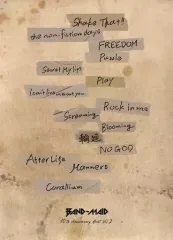 Shake That!!
the non-fiction days
FREEDOM
Puzzle
Secret My lips
Play
I can't live without you.
Rock in me
Screaming
Blooming
輪廻
NO GOD
After Life
Manners
Corallium
BAND-MAID
10th Anniversary Best Vol.2